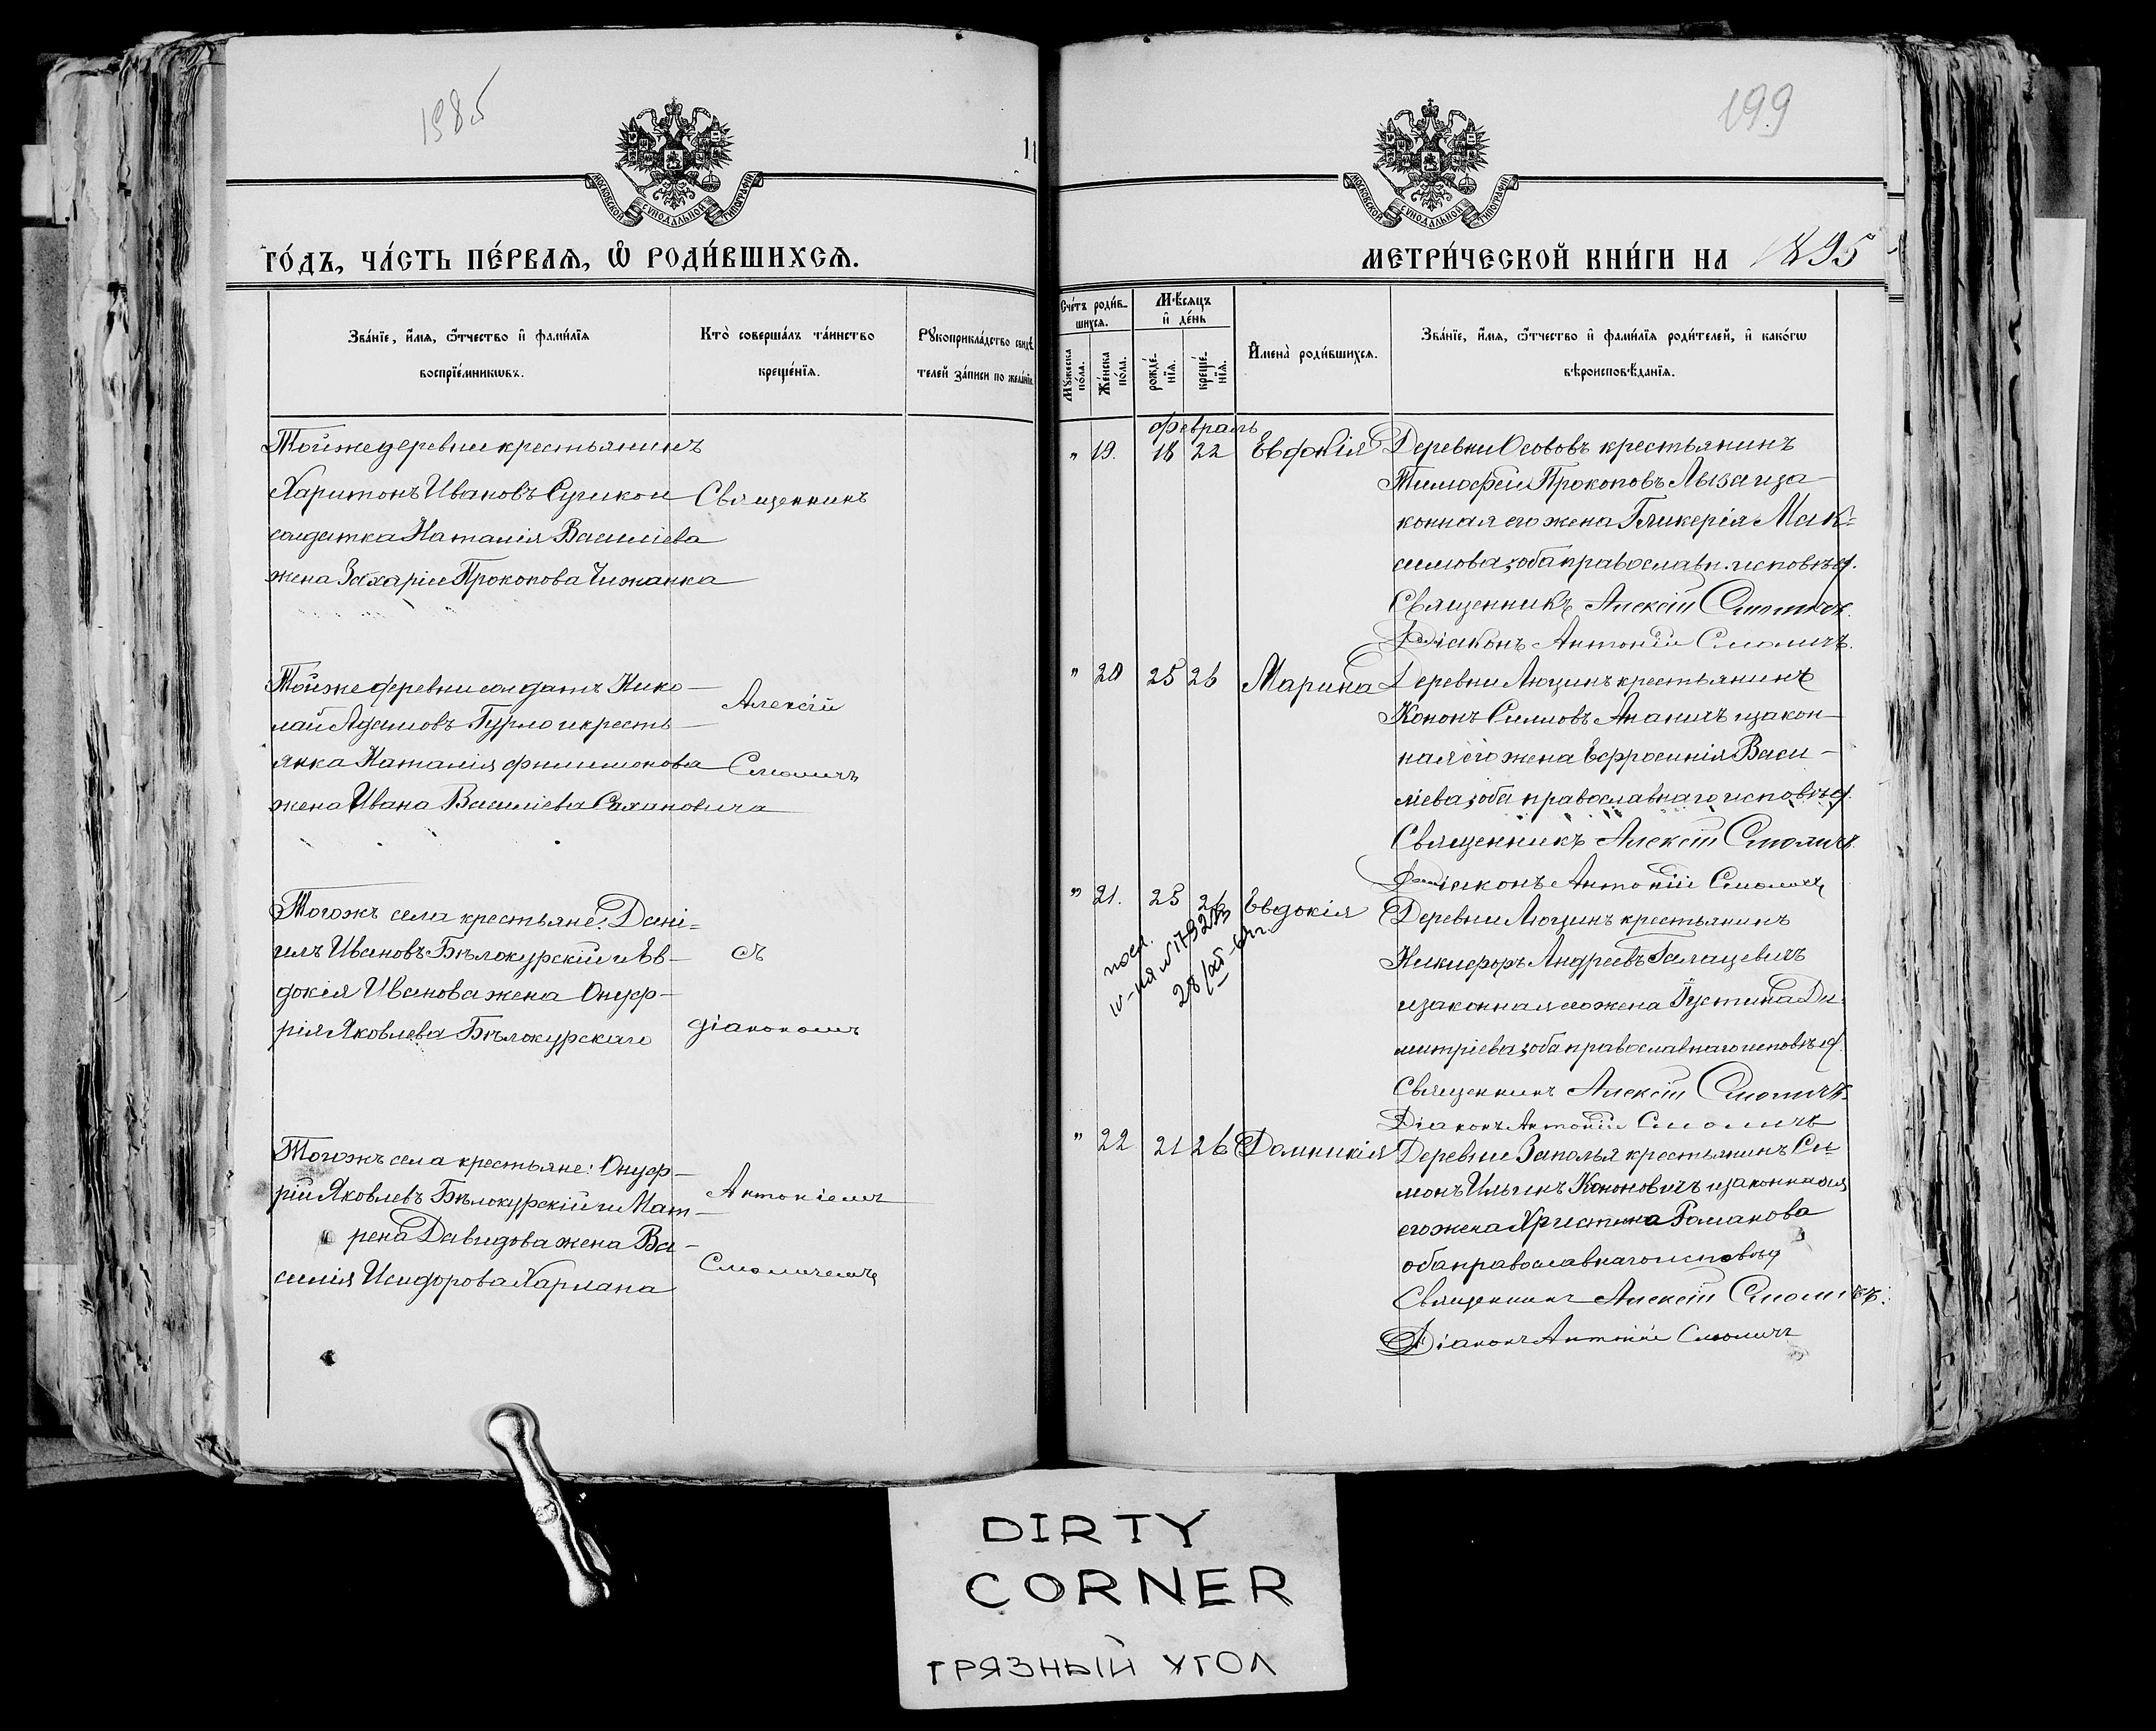 1985
МОСКОВСКОЙ СѴНОДАЛЬНОЙ ТИПОГРАФІИ
ГО́ДЪ, ЧА́СТЬ ПЕ́РВАѦ, Ѽ РОДИ́ВШИХСѦ.
Зва́нїе, и҆́мѧ, ѻ҆́тчество и҆ фами́лїѧ
воспрїе́мникѡвъ.
Кто̀ соверша́лъ та́инство
креще́нїѧ.
Рꙋкоприкла́дство свидѣ́
телей за́писи по жела́нїю
Тойже деревни крестьянинъ
Харитонъ Ивановъ
солдатка Наталія Василіева
жена Захаріи Прокопова Чижанка
Священникъ
Тойже деревни солдатъ Нико-
лай Адамовъ Гурло и кресть-
янка Наталія Филимонова
жена Ивана Василіева Сахановича
Алексій
Смоличъ
Тогожъ села крестьяне: Дані=
илъ Ивановъ Бѣлокурскій и Ев-
докія Иванова жена Онуф-
рія Яковлева Бѣлокурскаго
съ
діакономъ
Тогожъ села крестьяне: Онуф-
рій Яковлевъ Бѣлокурскій и Мат-
рена Давидова жена Ва-
силія Исидорова Харлана
Антоніемъ
Смоличемъ
199
МОСКОВСКОЙ СѴНОДАЛЬНОЙ ТИПОГРАФІИ
МЕТРИ́ЧЕСКОЙ КНИ́ГИ НА 1895
Сче́тъ роди́в-
шихсѧ.
Мꙋ́жеска по́ла.
Же́нска по́ла.
Мѣ́сѧцъ
и҆ де́нь
рожде́-нїѧ.
креще́-нїѧ.
И҆мена̀ роди́вшихсѧ.
Зва́нїе, и҆́мѧ, ѻ҆́тчество и҆ фами́лїѧ роди́телей, и҆ како́гѡ
вѣроисповѣ́данїѧ.
Февраль
" 19. 18 22 Деревни Осововъ крестьянинъ
Тимофей Прокоповъ Лыза и за-
конная его жена Гликерія Мак=
симова, оба православн. исповѣд.
Священникъ Алексій Смоличъ.
Діаконъ Антоній Смоличъ.
" 20 25 26 Марина Деревни Лющикъ крестьянинъ
Кононъ Симовъ Ананичъ и закон-
ная его жена Ефросинія Васи-
ліева, оба православнаго исповѣд.
Священникъ Алексій Смоличъ
Діаконъ Антоній Смоличъ
" 21. 25 26 Евдокія Деревни Лющикъ крестьянинъ
Никифоръ Андреевъ Галацевичъ
и законная его жена Іустина Ди-
митріева, оба православнаго исповѣд.
Священникъ Алексій Смоличъ
Діаконъ Антоній Смоличъ
" 22 21 26 Домникія Деревни Заполья крестьянинъ Си-
монъ Ильинъ Кононовичъ и законная
его жена Христина Романова
оба православнаго исповѣд
Священникъ Алексій Смоличъ.
Діаконъ Антоній Смоличъ
DIRTY
CORNER
ГРЯЗНЫЙ УГОЛ